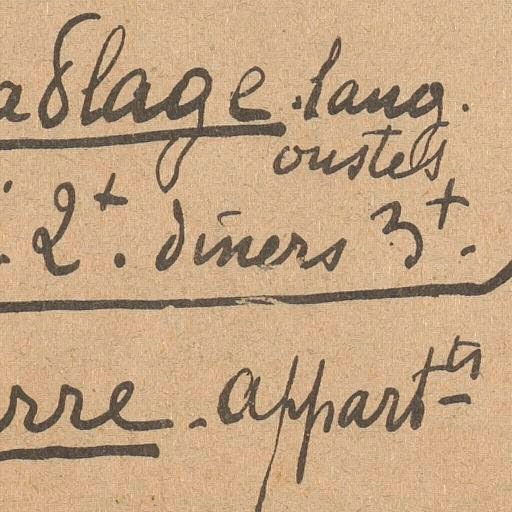 aблage. lang.
oustes,
. 2+. dîners 3+.
rre. appart-ts